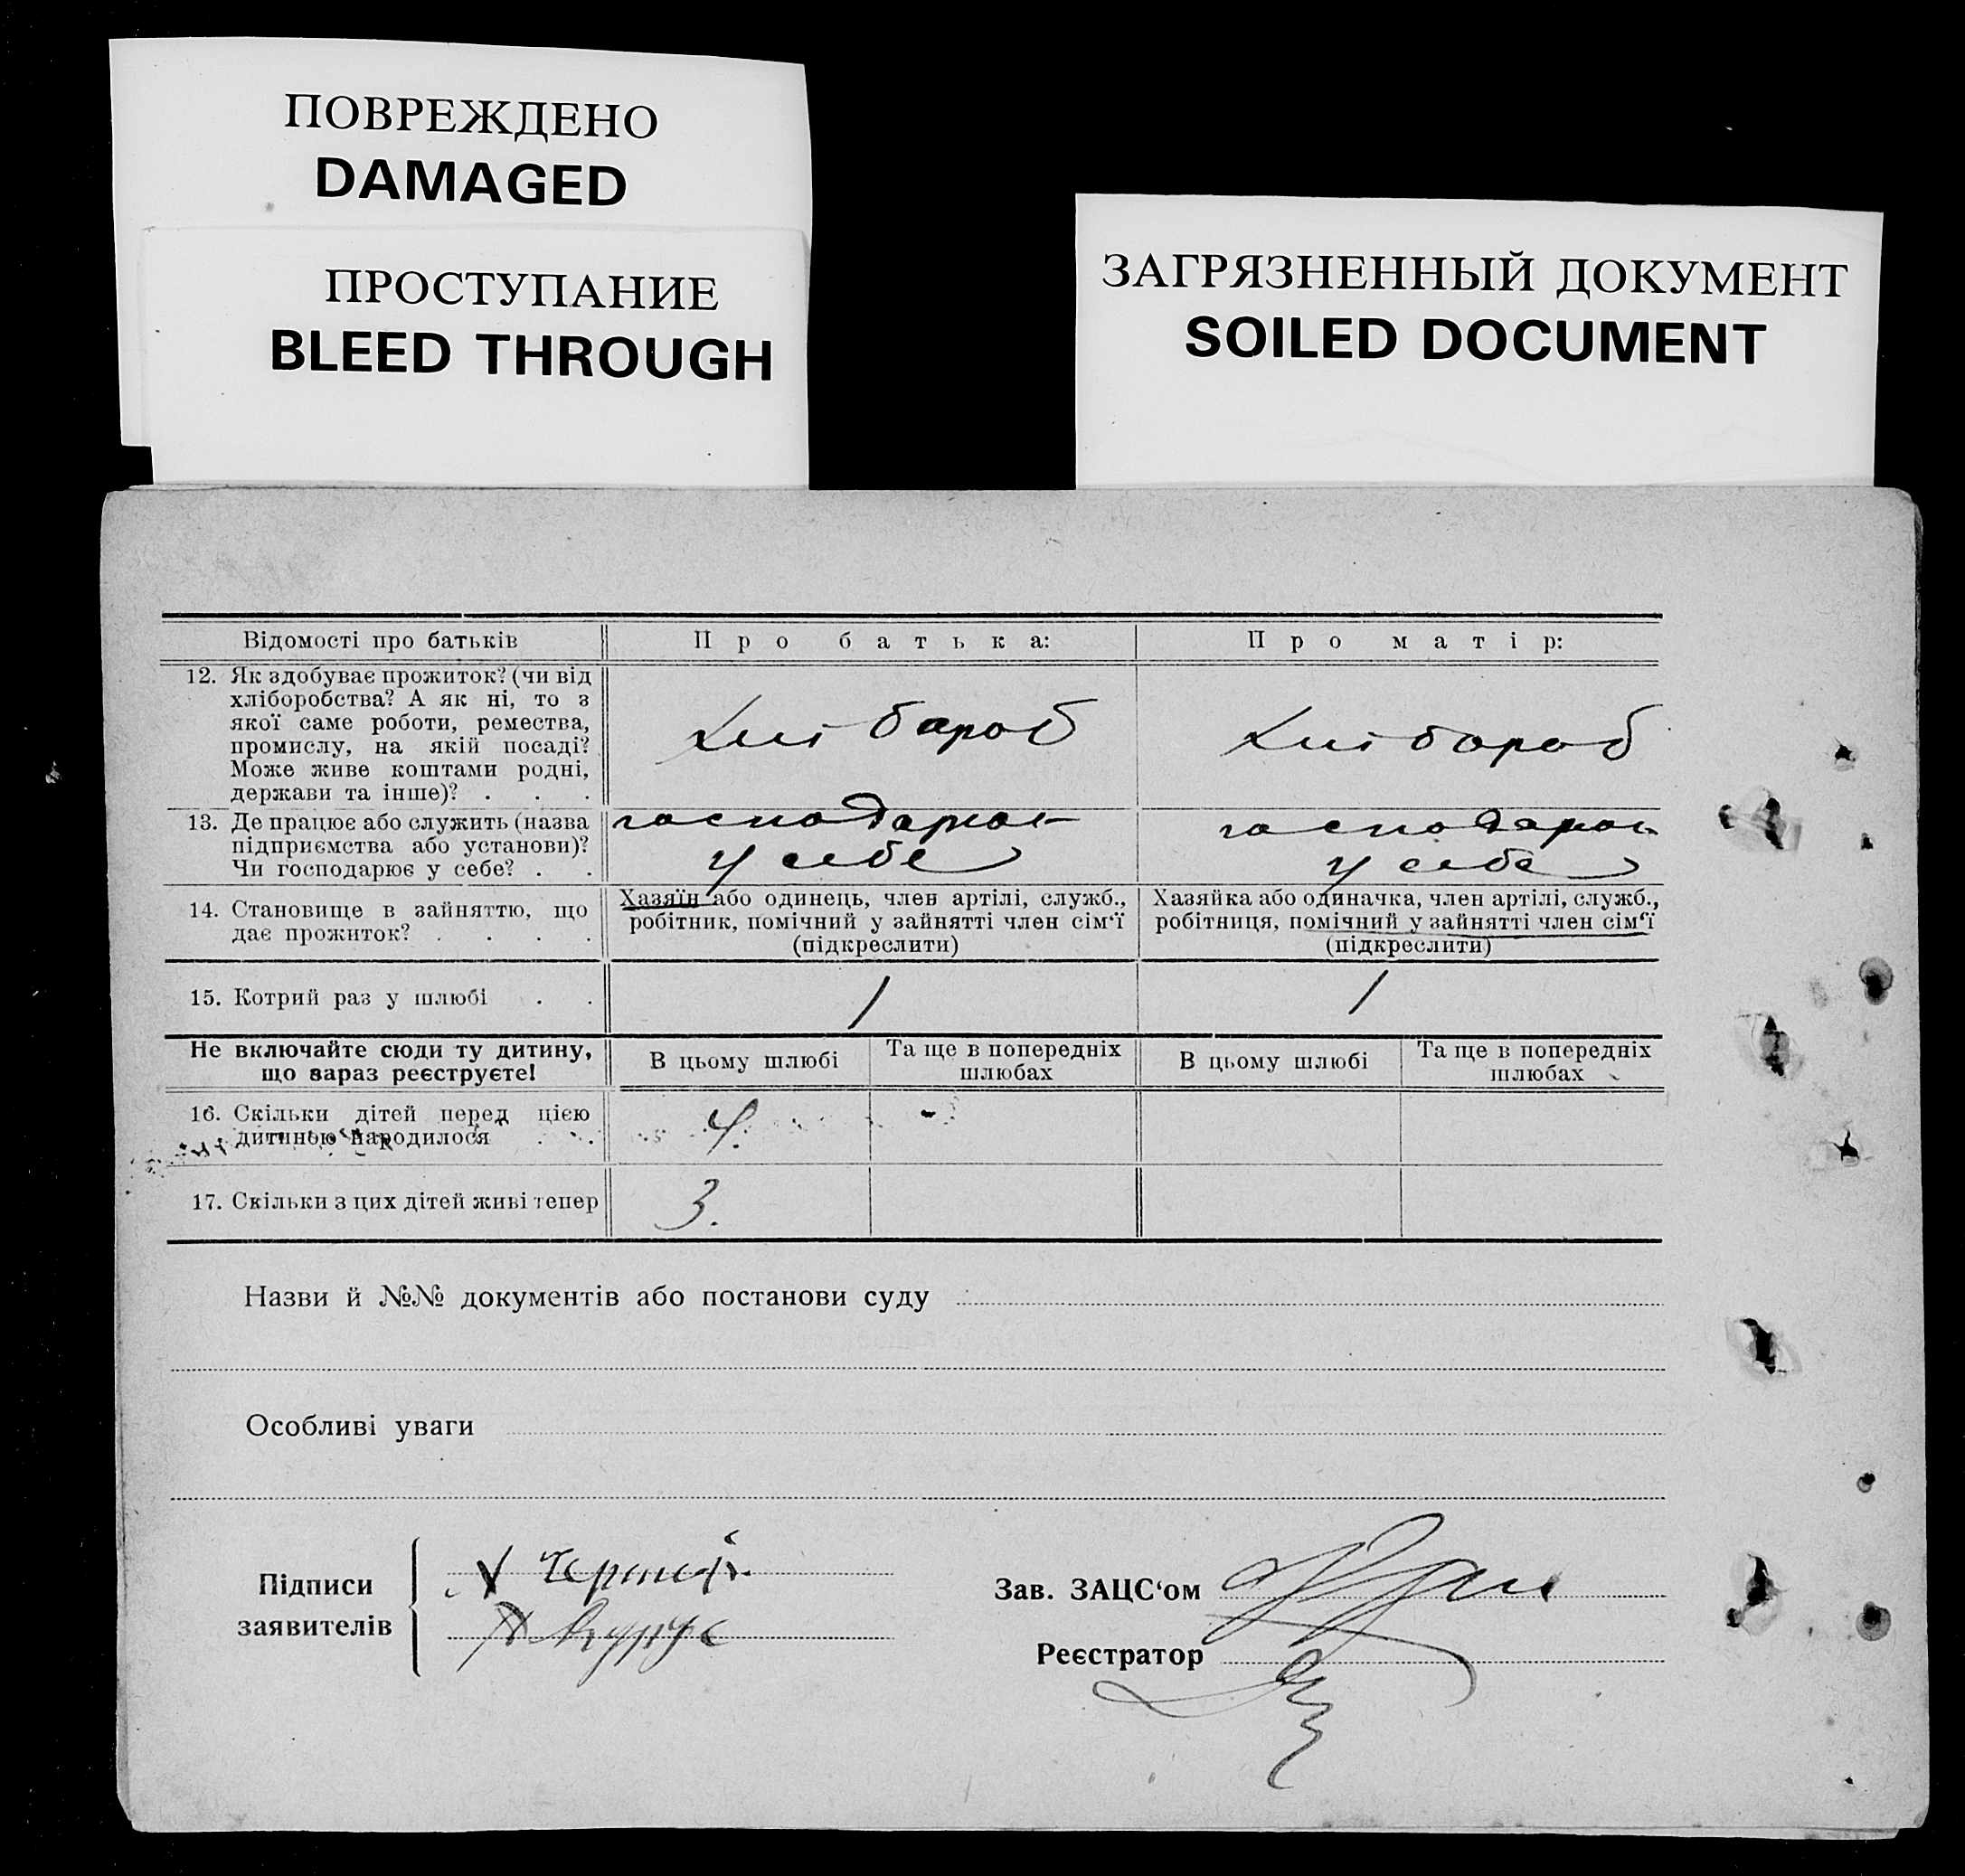 ПОВРЕЖДЕНО
DAMAGED
ПРОСТУПАНИЕ
BLEED THROUGH
ЗАГРЯЗНЕННЫЙ ДОКУМЕНТ
SOILED DOCUMENT
Відомості про батьків
Про батька:
Про матір:
12. Як здобуває прожиток? (чи від
хліборобства? А як ні, то з
якої саме роботи, ремества,
промислу, на якій посаді?
Може живе коштами родні,
держави та інше)? . . .
Хлібароб
Хлібороб
13. Де працює або служить (назва
підприємства або установи)?
Чи господарює у себе? . .
господарює
у себе
господарює
у себе
14. Становище в зайняттю, що
дає прожиток? . . . .
Хазяїн або одинець, член артілі, служб.,
робітник, помічний у зайнятті член сім'ї
(підкреслити)
Хазяйка або одиначка, член артілі, служб.,
робітниця, помічний у зайнятті член сім'ї
(підкреслити)
15. Котрий раз у шлюбі . .
1
1
Не включайте сюди ту дитину,
що зараз реєструєте!
В цьому шлюбі
Та ще в попередніх
шлюбах
В цьому шлюбі
Та ще в попередніх
шлюбах
16. Скільки дітей перед цією
дитиною народилося . .
4.
-
17. Скільки з цих дітей живі тепер
3.
Назви й №№ документів або постанови суду
Особливі уваги
Підписи
заявителів
Зав. ЗАЦС'ом
Реєстратор